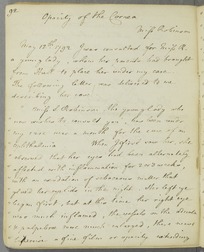 92
Opacity of the Cornea
Miss Robinson
May 13th 1792 I was consulted for Miss R.
a young lady, whom her guardn had brought
from Hull to place her under my care.
The following letter was related to me
describing her case.
" Miss Robinson, the young lady who
now wishes to consult you, has been under
my care near a month for the cure of an
ophthalmia. When I first saw her, she
observed that her eyes had been alternately
affected with inflammation for
with an exudation of matter that
glued her eyelids in the night. Her left eye
began first, but at the time her right eye
was much inflamed, the vessels on the
& adnata were much enlarged, & there was
a film or opacity extending